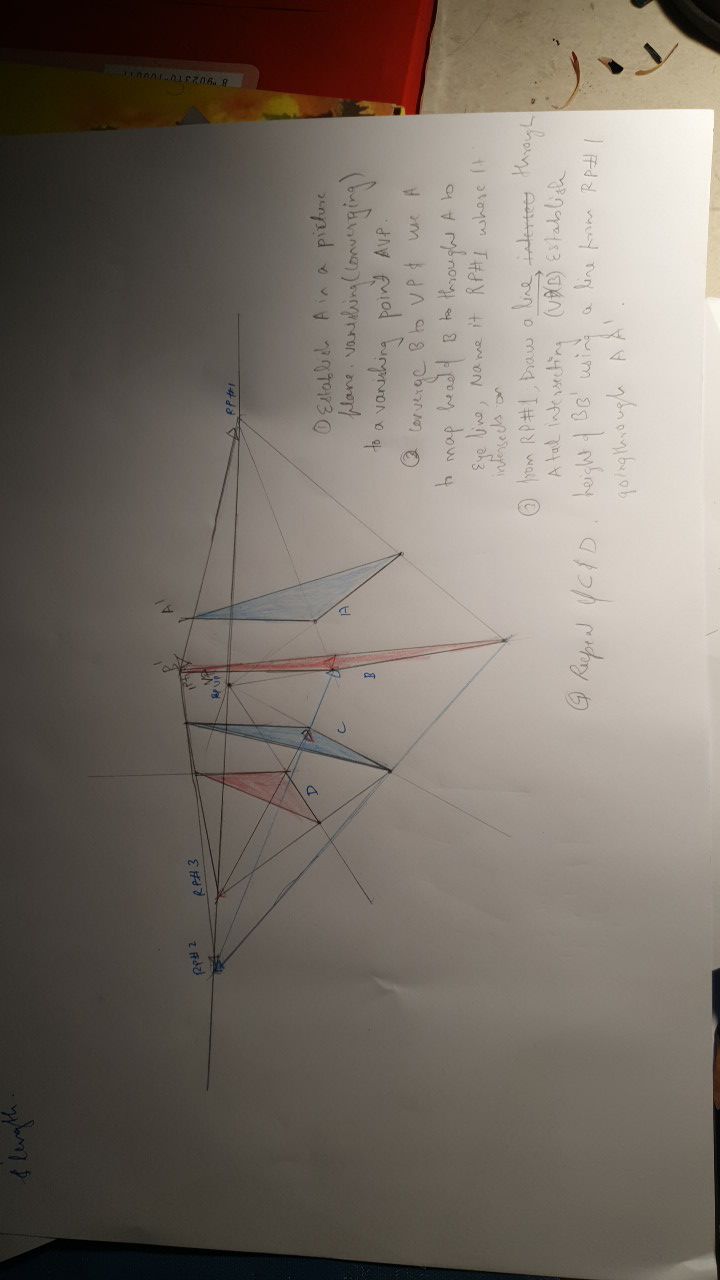 ① Establish A in a picture
plane. vanishing (converging)
to a vanishing point AVP.
② converge B to VP & use A
to map head of B to through A to
Eye line, Name it RP#1 where it
intersects on
③ from RP#1, Draw a line through
A to intersecting (VP/B) Establish
height of BB' using a line from RP#1
going through A A'.
④ Repeat C & D.
RP#1
A'
A
B'
VP
RPVP
B
C
D
RP#3
RP#2
& length.